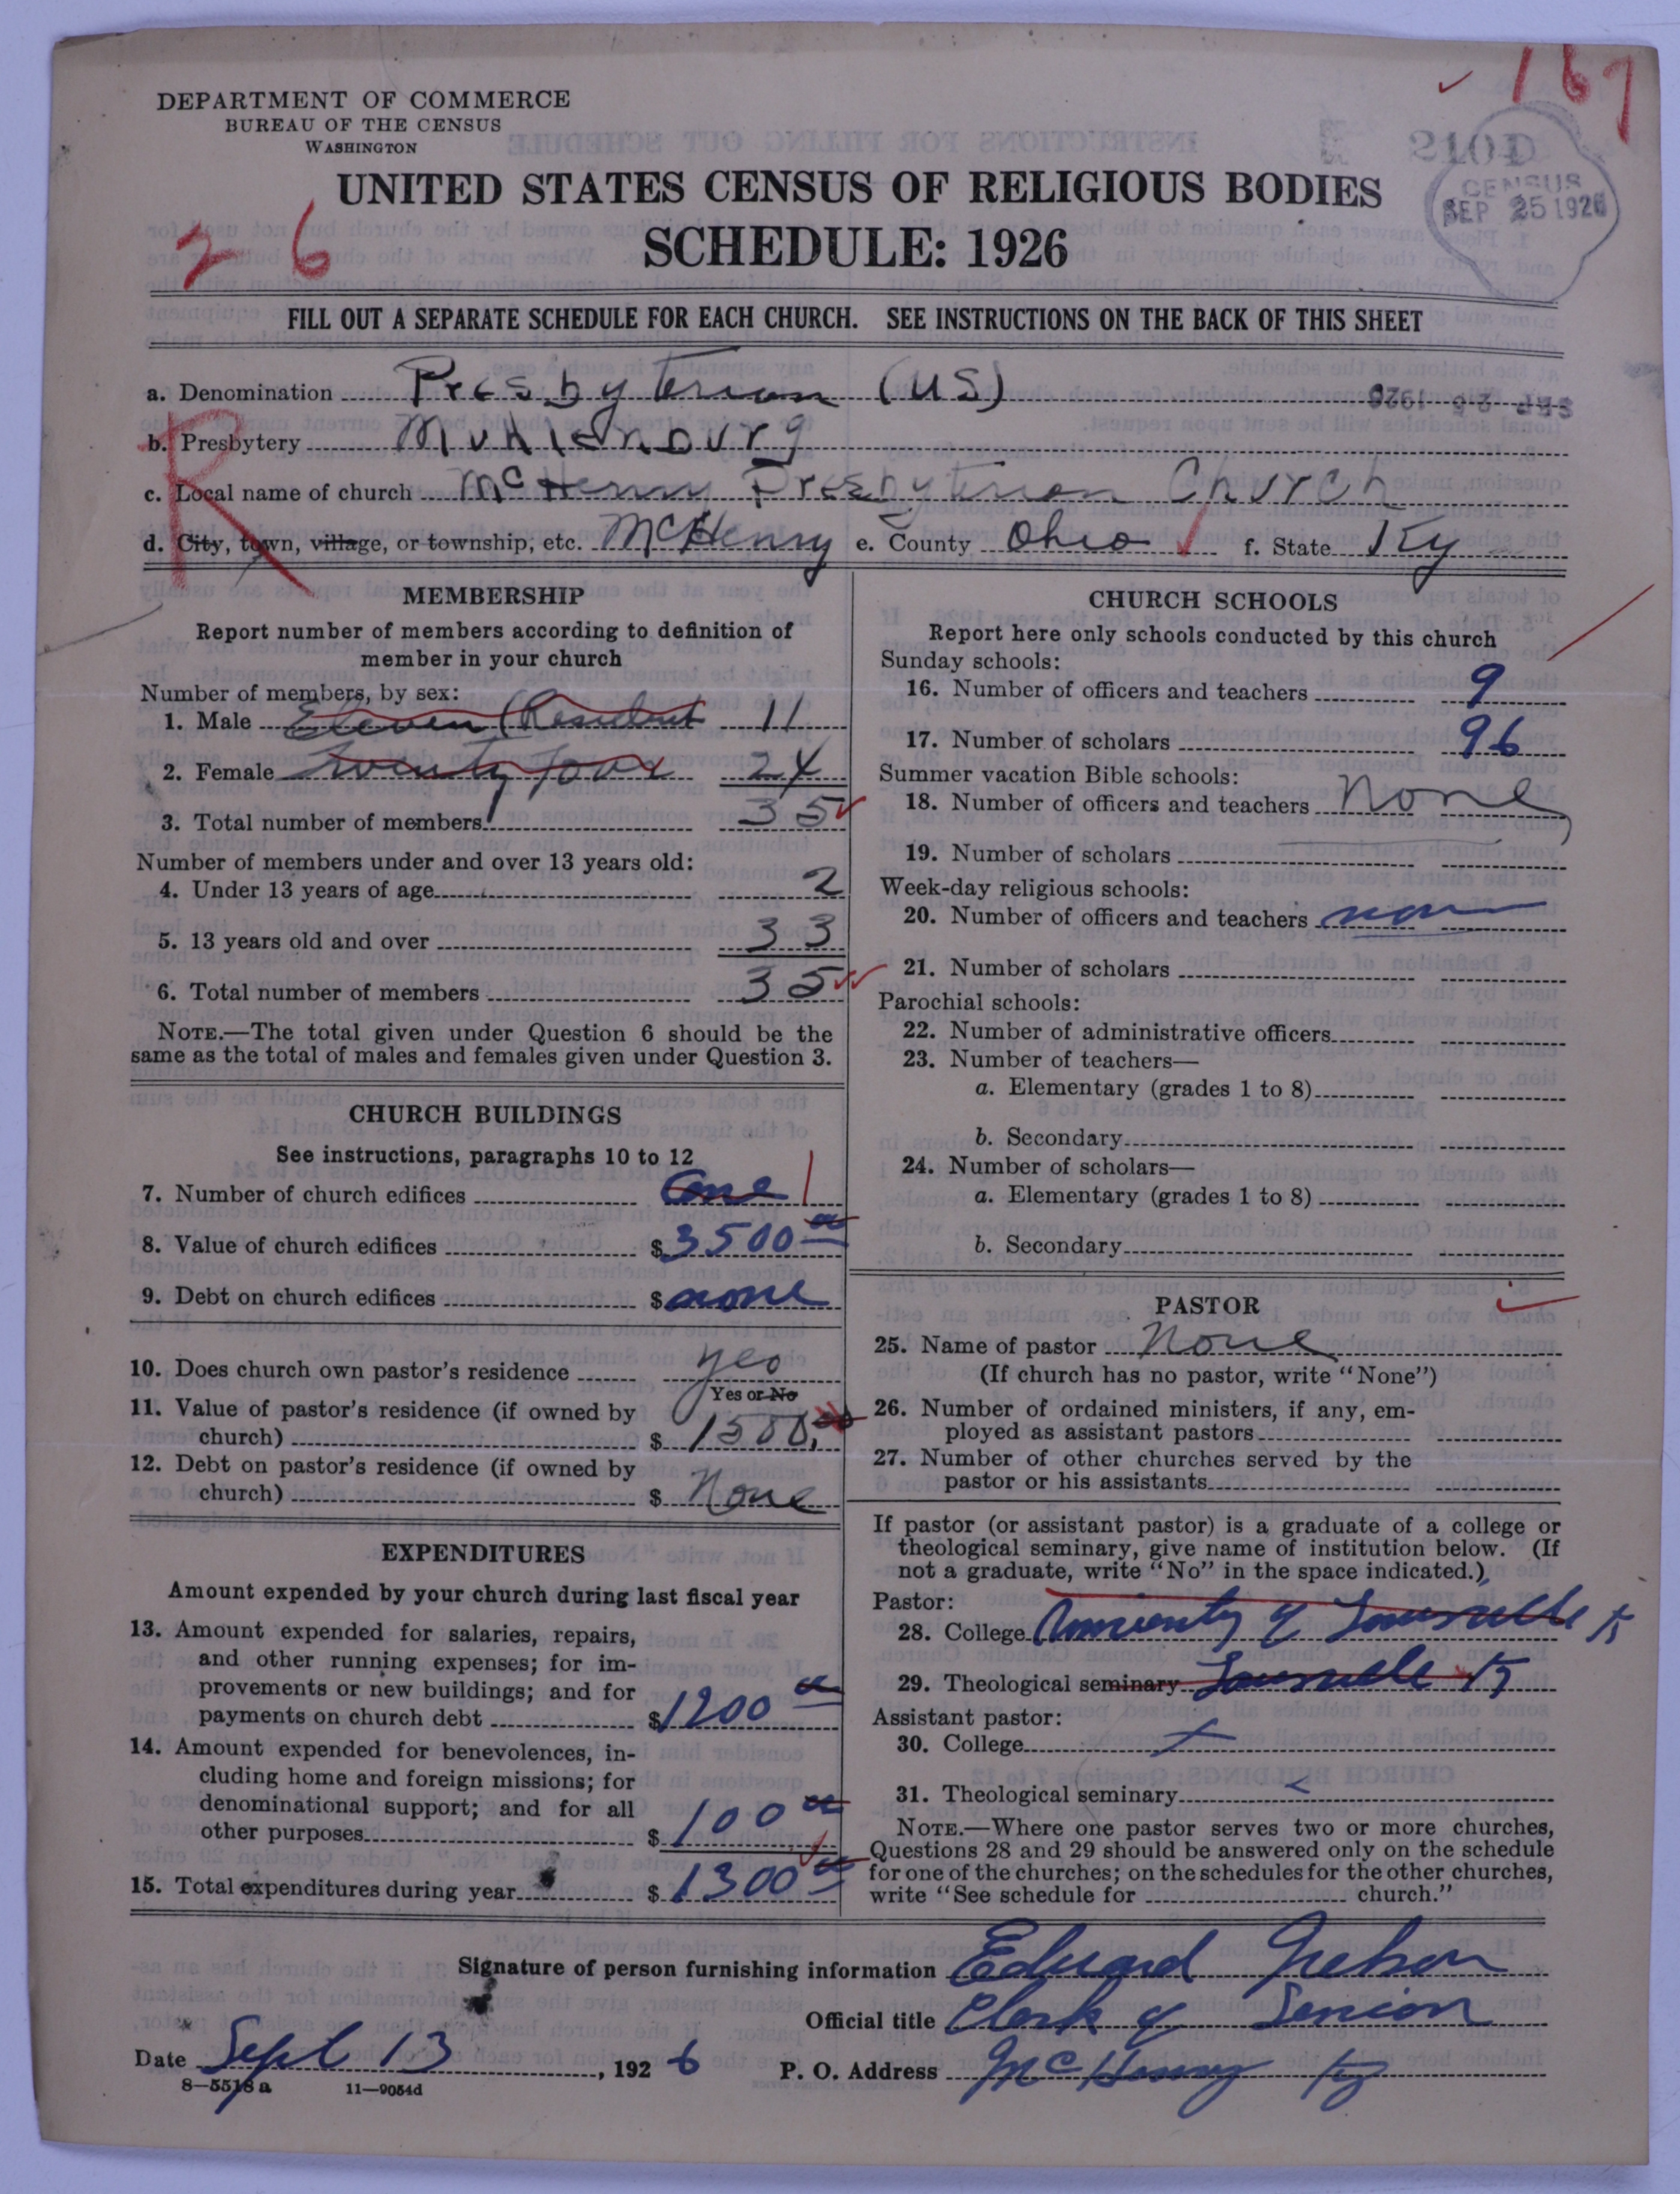 167
DEPARTMENT OF COMMERCE
BUREAU OF THE CENSUS
WASHINGTON
210D
UNITED STATES CENSUS OF RELIGIOUS BODIES
CENSUS
SEP 25 1926
SCHEDULE: 1926
26
FILL OUT A SEPARATE SCHEDULE FOR EACH CHURCH. SEE INSTRUCTIONS ON THE BACK OF THIS SHEET
a. Denomination Presbyterian (US)
SEP 25 1926
b. Presbytery Muhlenburg
R
c. Local name of church McHenry Presbyterian Church
d. City, town, village, or township, etc. McHenry e. County Ohio f. State Ky
MEMBERSHIP
Report number of members according to definition of
member in your church
Number of members, by sex:
1. Male Eleven (Resident 11
2. Female Twenty four 24
3. Total number of members 35
Number of members under and over 13 years old:
4. Under 13 years of age 2
5. 13 years old and over 33
6. Total number of members 35
NOTE.—The total given under Question 6 should be the
same as the total of males and females given under Question 3.
CHURCH BUILDINGS
See instructions, paragraphs 10 to 12
7. Number of church edifices One 1
8. Value of church edifices $3500 00
9. Debt on church edifices $ none
10. Does church own pastor's residence yes
Yes or No
11. Value of pastor's residence (if owned by
church) $ 1500,00
12. Debt on pastor's residence (if owned by
church) $ None
EXPENDITURES
Amount expended by your church during last fiscal year
13. Amount expended for salaries, repairs,
and other running expenses; for im-
provements or new buildings; and for
payments on church debt $1200 00
14. Amount expended for benevolences, in-
cluding home and foreign missions; for
denominational support; and for all
other purposes $ 100 00
15. Total expenditures during year $ 1300 00
CHURCH SCHOOLS
Report here only schools conducted by this church
Sunday schools:
16. Number of officers and teachers 9
17. Number of scholars 96
Summer vacation Bible schools:
18. Number of officers and teachers None
19. Number of scholars
Week-day religious schools:
20. Number of officers and teachers none
21. Number of scholars
Parochial schools:
22. Number of administrative officers
23. Number of teachers—
a. Elementary (grades 1 to 8)
b. Secondary
24. Number of scholars—
a. Elementary (grades 1 to 8)
b. Secondary
PASTOR
25. Name of pastor None
(If church has no pastor, write "None")
26. Number of ordained ministers, if any, em-
ployed as assistant pastors
27. Number of other churches served by the
pastor or his assistants
If pastor (or assistant pastor) is a graduate of a college or
theological seminary, give name of institution below. (If
not a graduate, write "No" in the space indicated.)
Pastor:
28. College University of Louisville Ky
29. Theological seminary Louisville Ky
Assistant pastor:
30. College
31. Theological seminary
NOTE.—Where one pastor serves two or more churches,
Questions 28 and 29 should be answered only on the schedule
for one of the churches; on the schedules for the other churches,
write "See schedule for church."
Signature of person furnishing information Edward
Official title Clerk of Session
Date Sept 13, 1926 P. O. Address McHenry Ky
8—5518 a 11—9054d